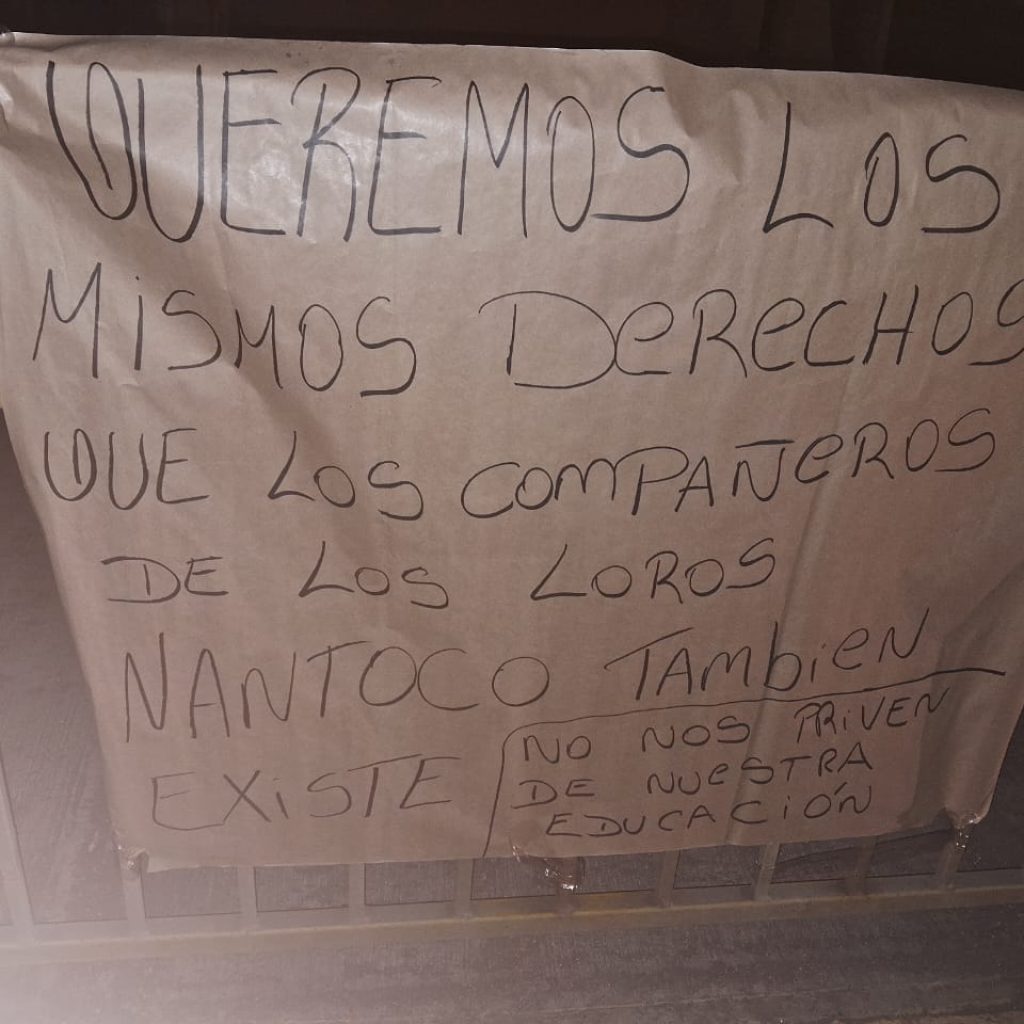 QUEREMOS LOS
MiSMOS DeReCHOS
QUE LOS COMPAÑeROS
DE LOS LOROS
NANTOCO TAmbieN
EXiSTE
NO NOS PRiVEN
DE NUeSTRA
EDUCACiÓN